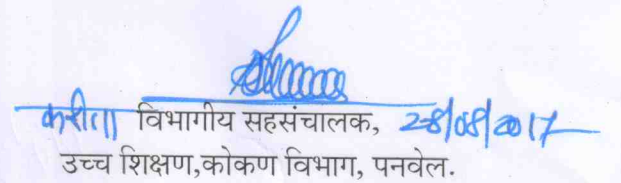 करीता विभागीय सहसंचालक, 28/08/2017
उच्च शिक्षण,कोकण विभाग, पनवेल.